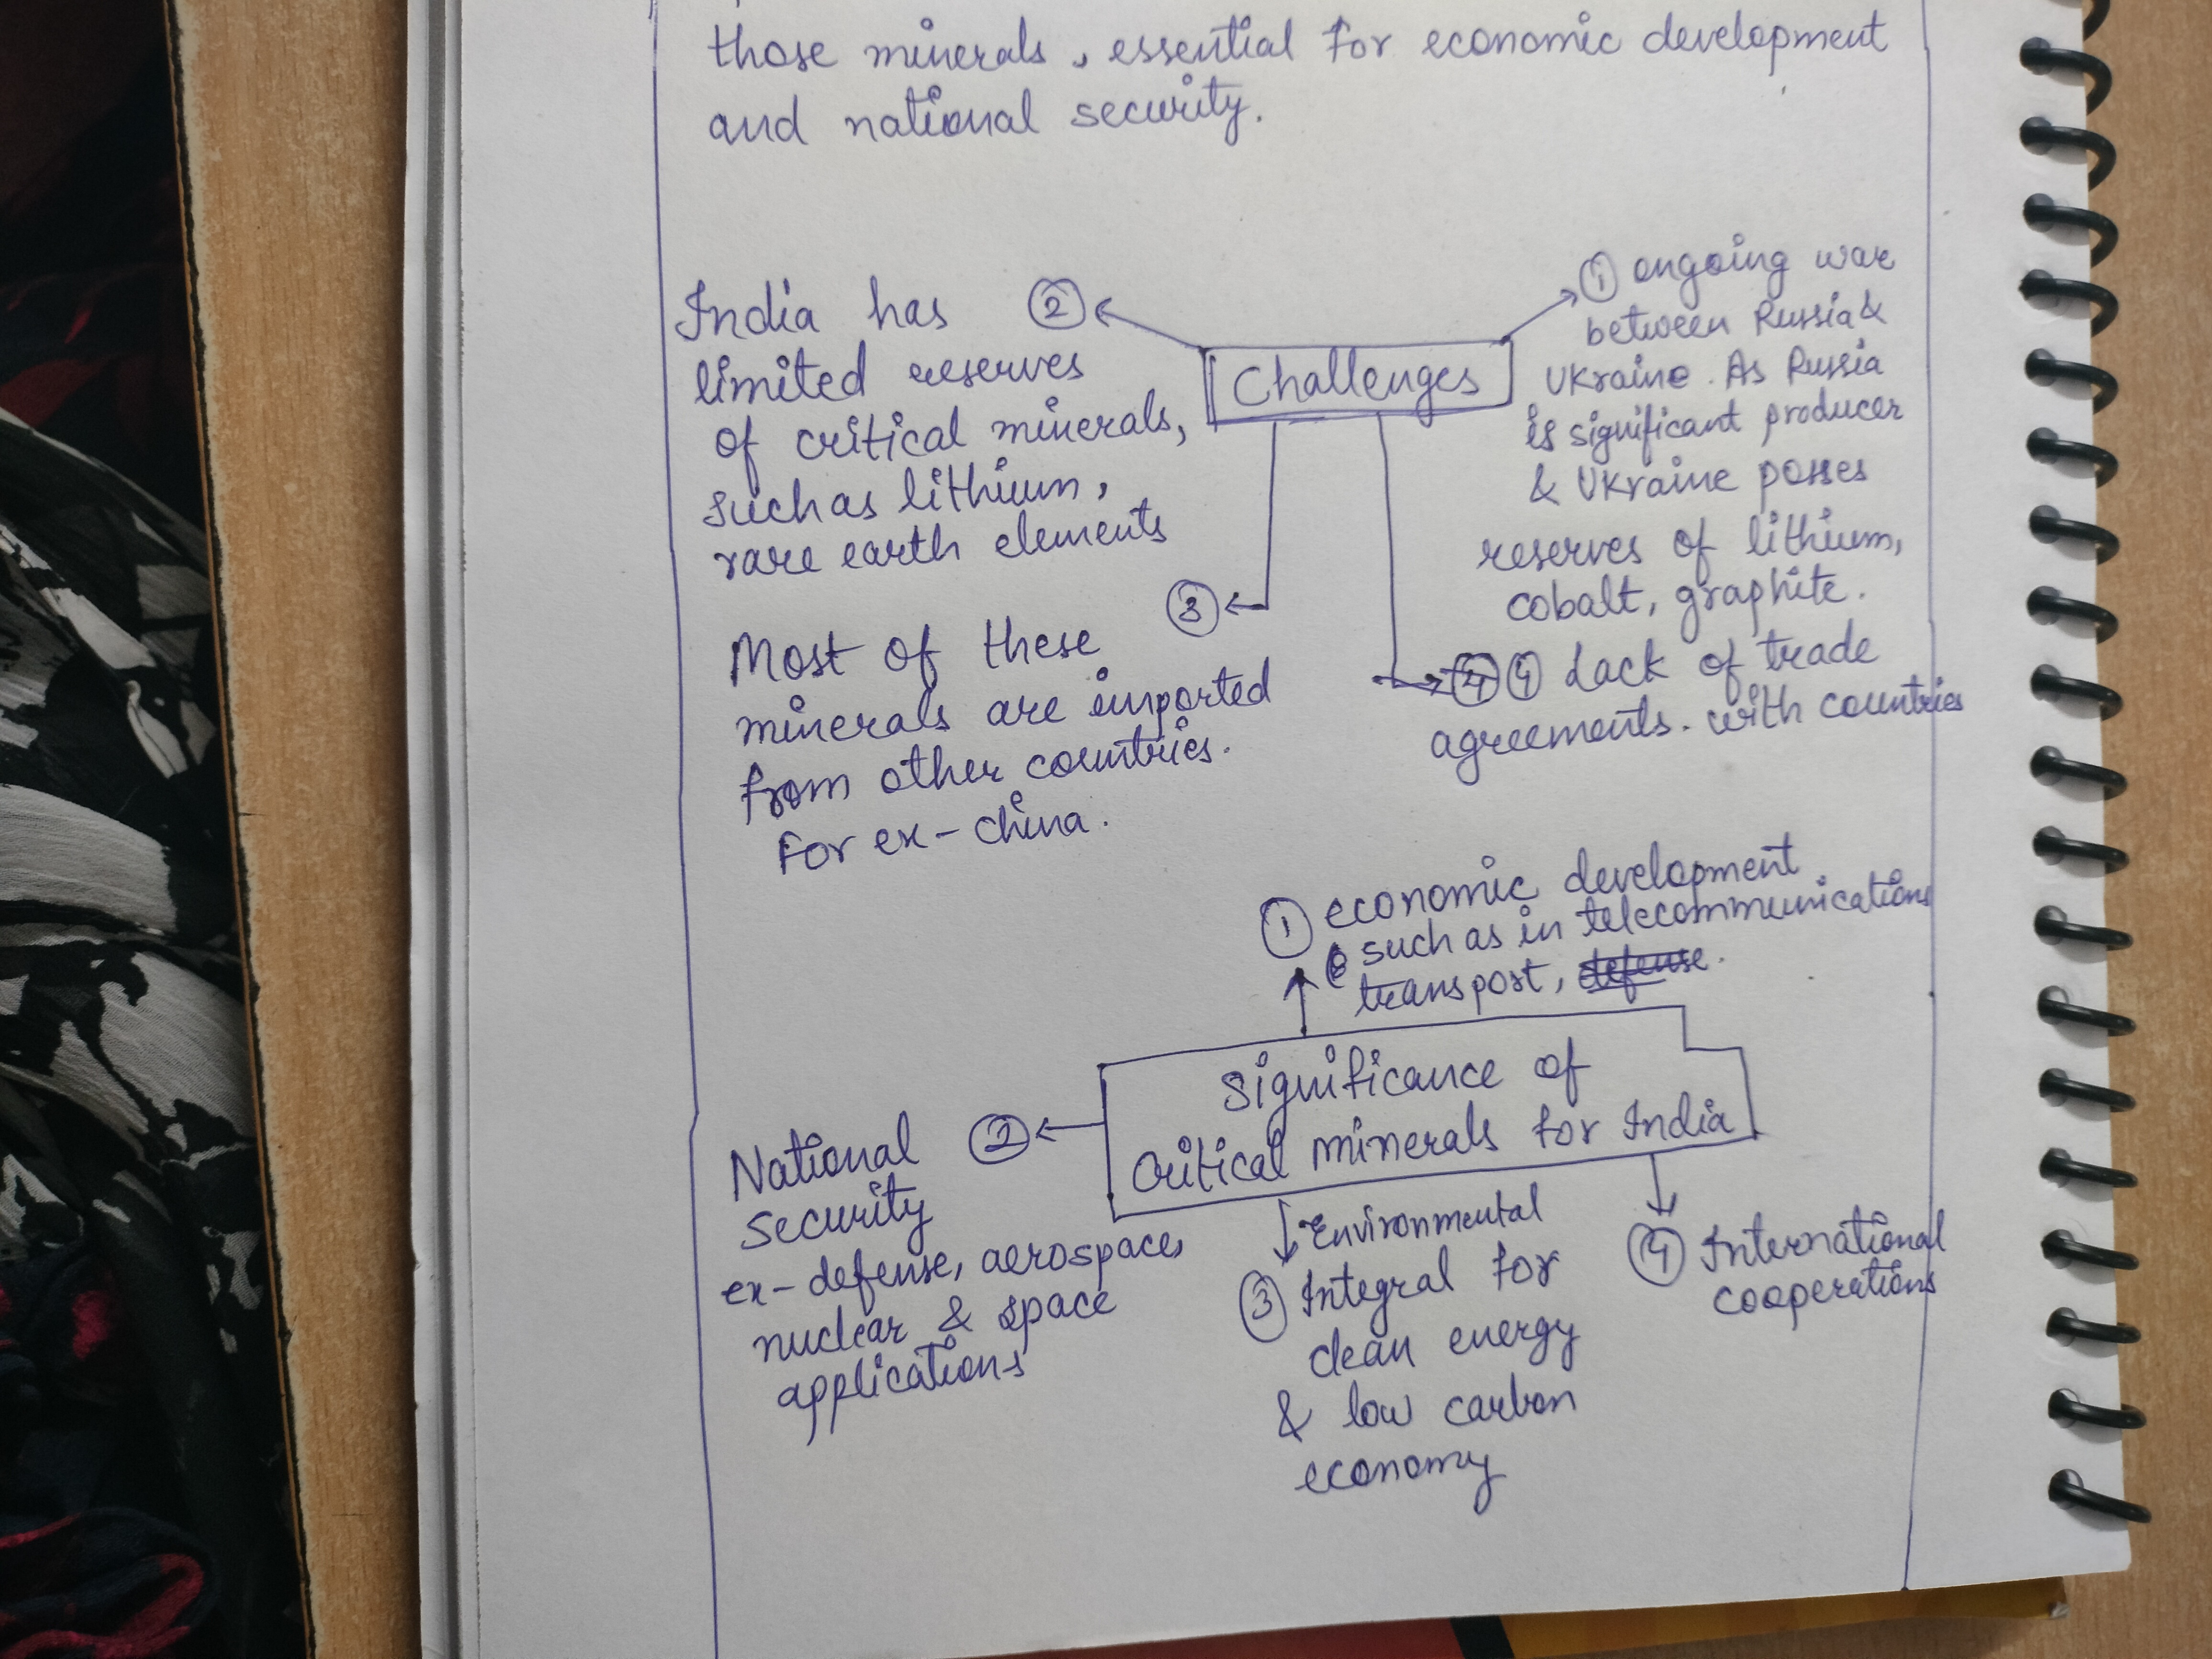 those minerals, essential for economic development
and national security.
Challenges
① ongoing war
between Russia &
Ukraine. As Russia
is significant producer
& Ukraine posses
reserves of lithium,
cobalt, graphite.
India has ②
limited reserves
of critical minerals,
such as lithium,
rare earth elements
③
Most of these
minerals are imported
from other countries.
For ex- china.
④ Lack of trade
agreements. with countries
① economic development
such as in telecommunications
transport, defense.
Significance of
Critical minerals for India
National ②
security
ex- defense, aerospace,
nuclear & space
applications
Environmental
③ Integral for
clean energy
& low carbon
economy
④ International
cooperations